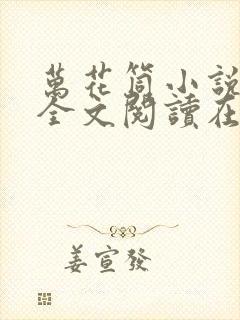 萬花筒小說
全文閱讀在
姜宣發